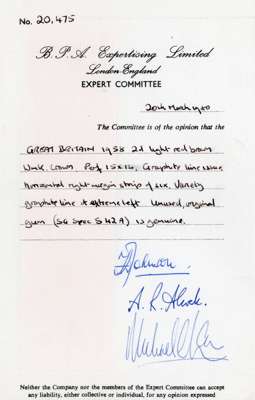 No. 20,475
B. P. A. Expertising Limited
London England
EXPERT COMMITTEE
20th March 1980
The Committee is of the opinion that the
GREAT BRITAIN 1958 2d light red brown
Wmk. Crown Perf 15x14, Graphite line issue
horizontal right margin strip of six. Variety
graphite line at extreme left Unused, original
gum (SG Spec S42A) is genuine.
A. R. Alcock.
Neither the Company nor the members of the Expert Committee can accept
any liability, either collective or individual, for any opinion expressed